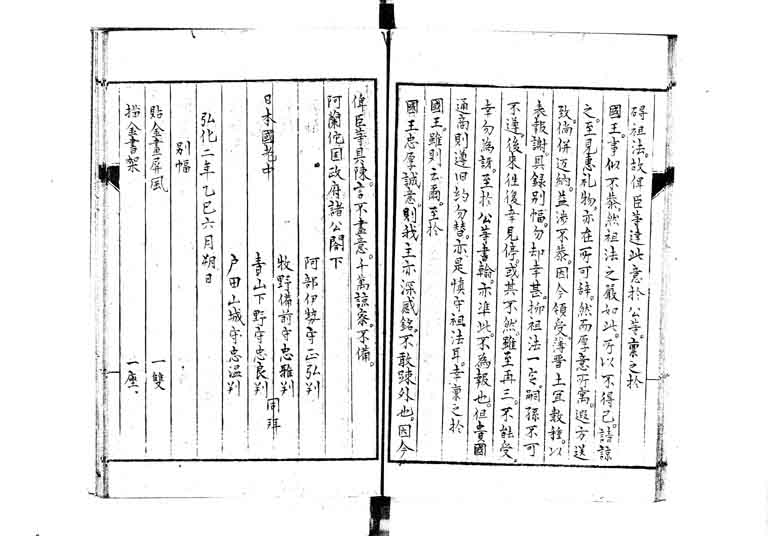 碍祖法。故俾臣等達此意於公等。稟之於
國王。事似不恭。然祖法之嚴如此。所以不得已。請諒
之。至見惠礼物。亦在所可辞。然而厚意所寓。遐方送
致。倘併返納。益渉不恭。因今領受。薄晋土宜数種。以
表報謝。具録別幅。勿却幸甚。抑祖法一定。嗣孫不可
不遵。後来往復幸見停。或其不然。雖至再三。不能受。
幸勿為訝。至於公等書翰。亦準此。不為報也。但貴國
通商。則遵旧約勿替。亦是慎守祖法耳。幸稟之於
國王。雖則云爾。至於
國王忠厚誠意。則我主亦深感銘。不敢踈外也。因今
俾臣等具陳。言不盡意。千萬諒察。不備。
阿蘭佗国政府諸公閤下
阿部伊勢守正弘判
牧野備前守忠雅判
日本國老中
青山下野守忠良判
同拜
戸田山城守忠温判
弘化二年乙巳六月朔日
別幅
貼金畫屏風 一雙
描金書架 一座